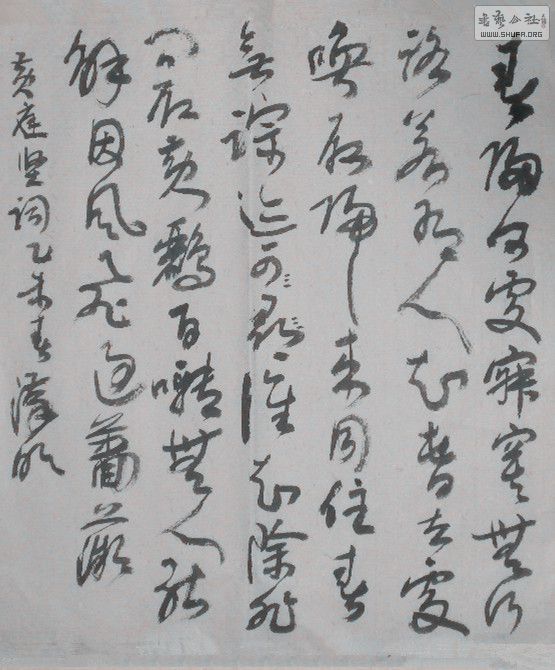 春歸何處寂寞無行
路若有人知春去處
喚取歸來同住春
無踪迹可尋誰知除非
问取黄鹂百囀無人能
解因風飛過薔薇
黄庭坚词乙未春
書藝公社
WWW.SHUFA.ORG